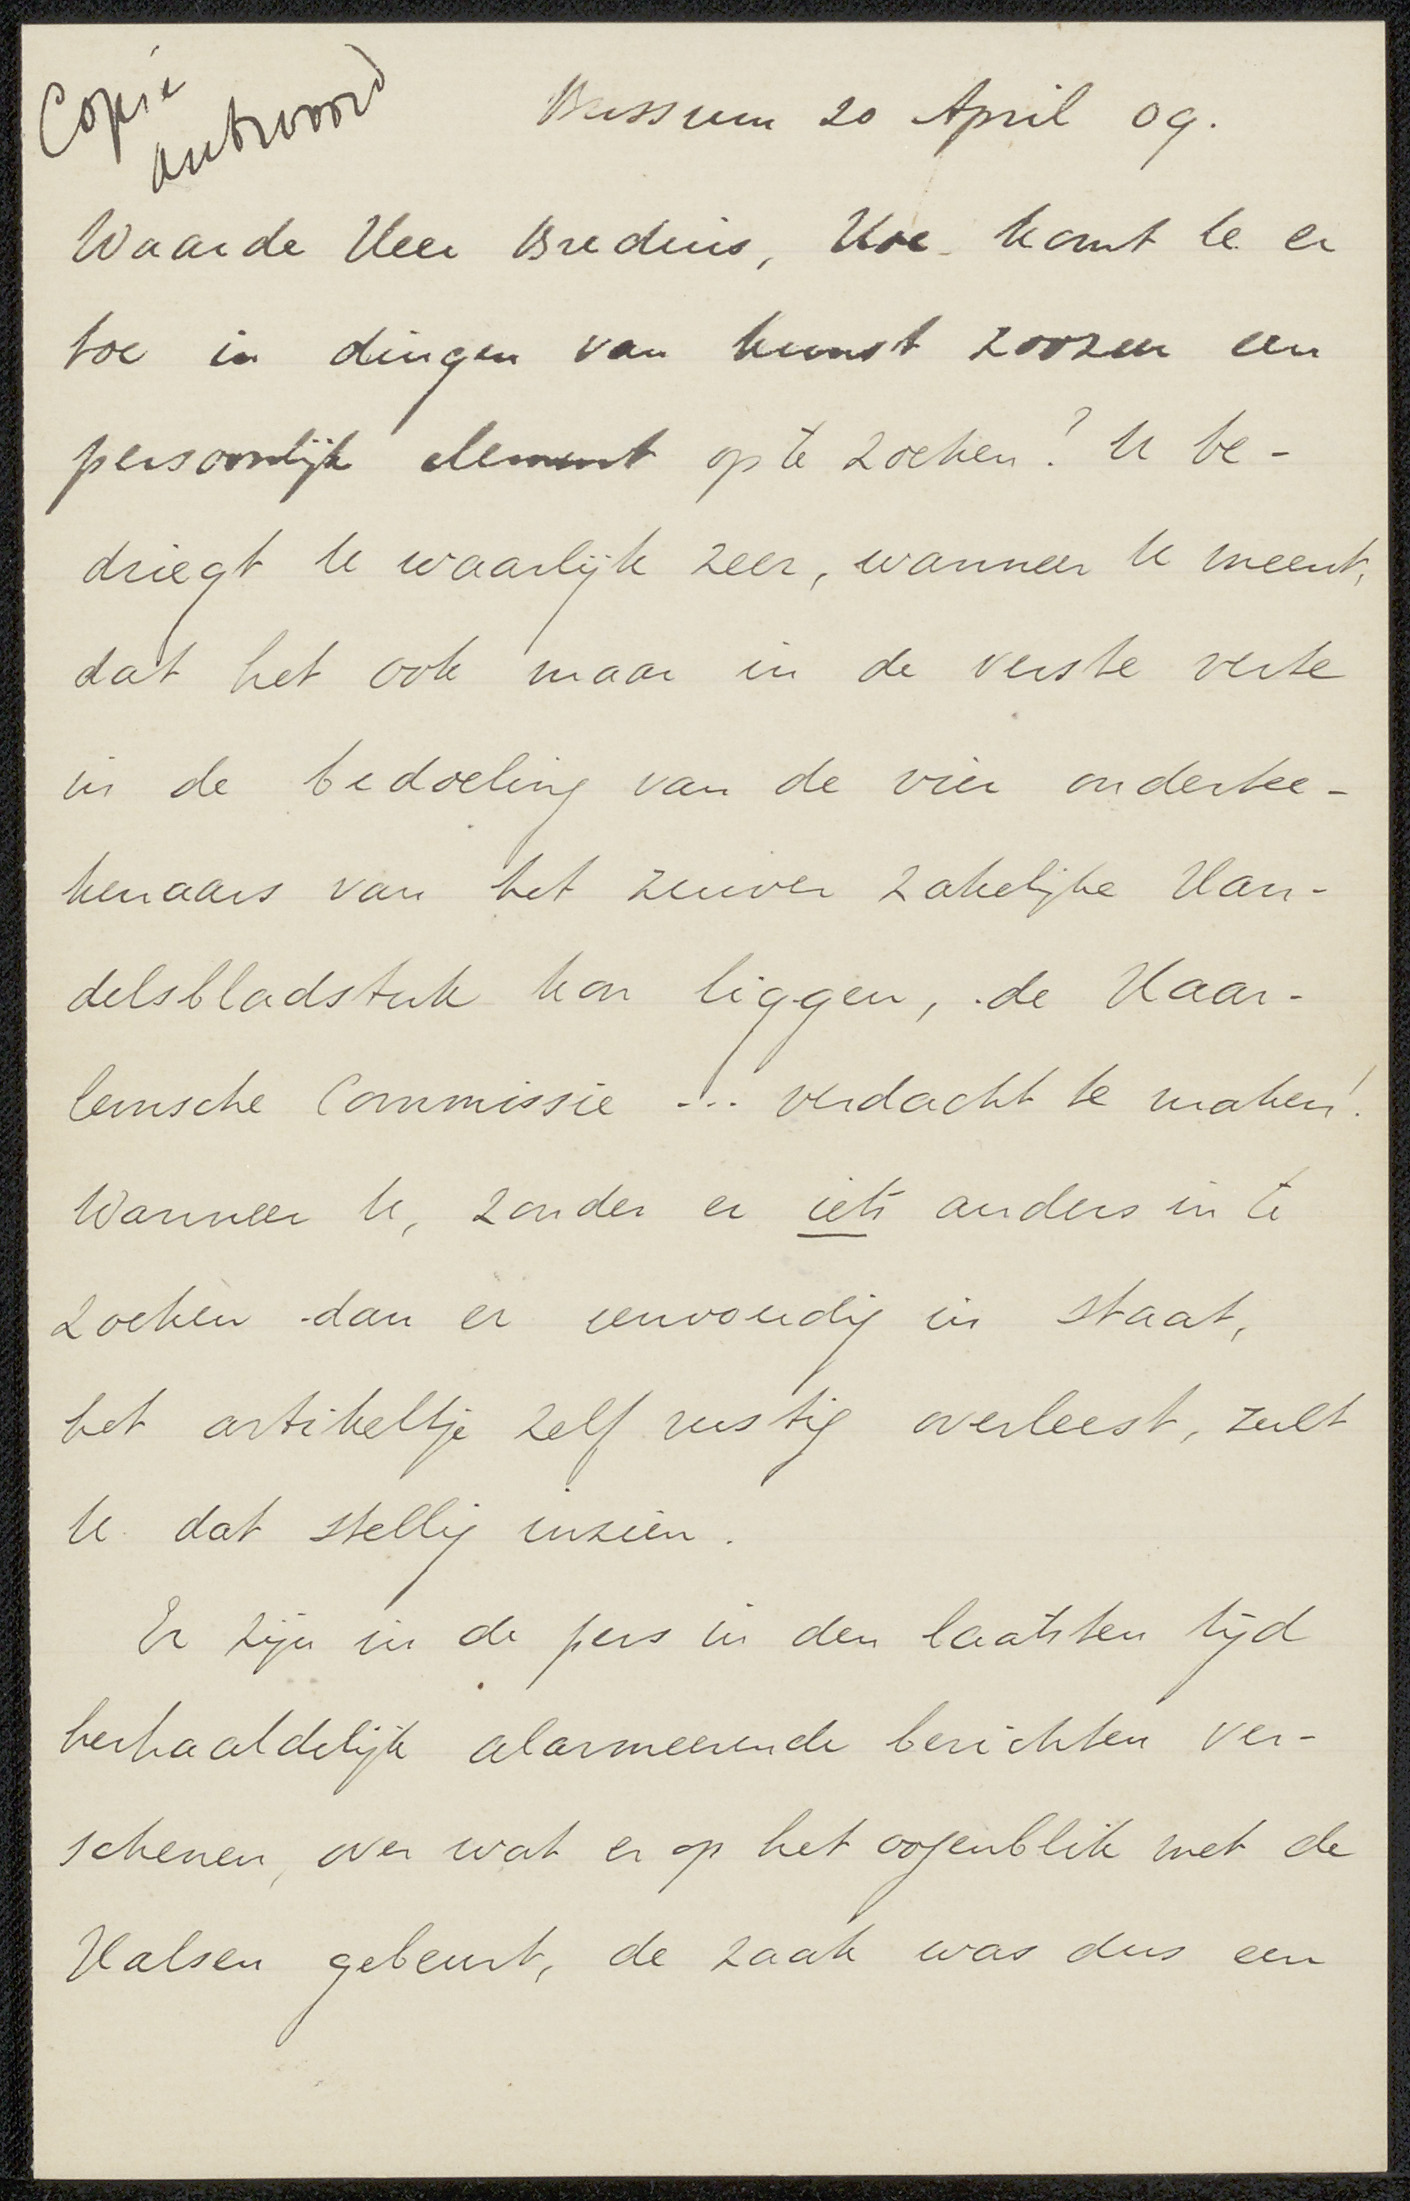 Copie
antwoord
Bussum 20 April 09.
Waarde Heer Bredius, Hoe komt U er
toe in dingen van kunst zoozeer een
persoonlijk element op te zoeken? U be-
driegt U waarlijk zeer, wanneer U meent,
dat het ook maar in de verste verte
in de bedoeling van de vier ondertee-
kenaars van het zuiver zakelijke Han-
delsbladstuk kon liggen, de Haar-
lemsche Commissie ... verdacht te maken!
Wanneer U, zonder er iets anders in te
zoeken dan er eenvoudig in staat,
het artikeltje zelf rustig overleest, zult
U dat stellig inzien.
Er zijn in de pers in den laatsten tijd
herhaaldelijk alarmeerende berichten ver-
schenen, over wat er op het oogenblik met de
Halsen gebeurt, de zaak was dus een